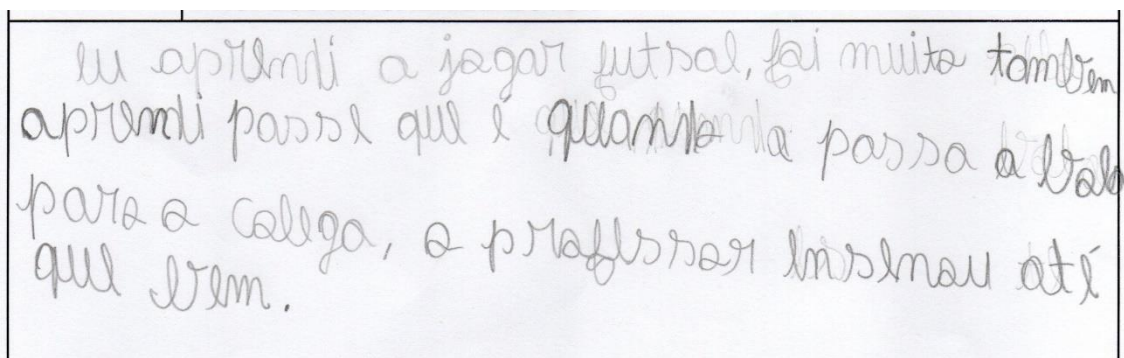 eu aprendi a jogar futsal, foi muito também
aprendi passe que é quando a passa a bola
para o colega, o professor ensinou até
que bem.